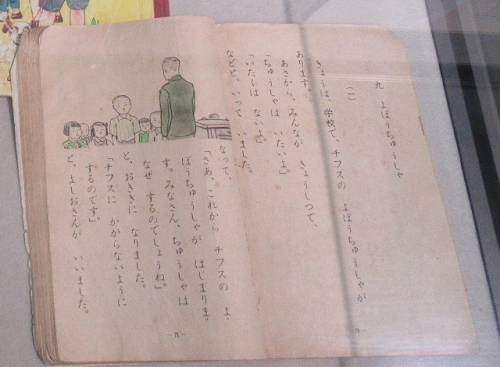 九 よぼうちゅうしゃ
(一)
きょうは、学校で、チフスの よぼうちゅうしゃが
あります。
あさから、みんなが きょうしつで、
「ちゅうしゃは いたいよ。」
「いたくは ないよ。」
などと、いって いました。
なって、
「さあ、これから チフスの よ
ぼうちゅうしゃが はじまりま
す。みなさん、ちゅうしゃは
なぜ するのでしょうね。」
と、おききに なりました。
「チフスに かからないように
するのです。」
と、よしおさんが いいました。